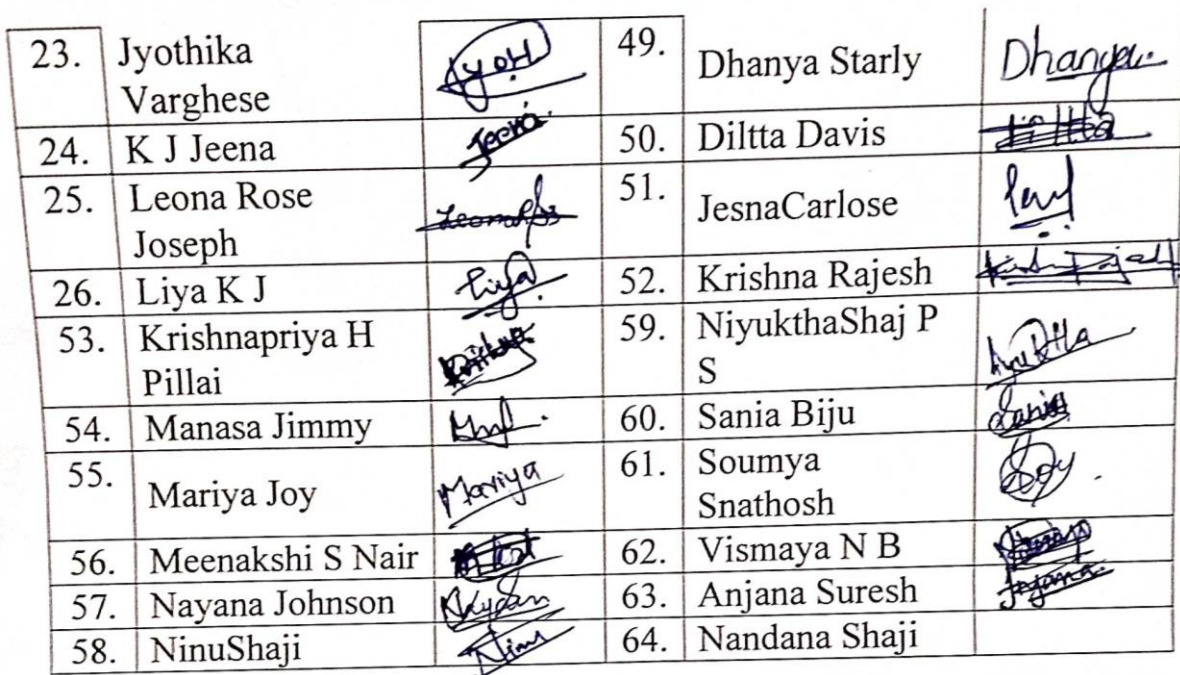 23. Jyothika Varghese Jyoti 49. Dhanya Starly Dhanya
24. K J Jeena Jeena 50. Diltta Davis Diltta
25. Leona Rose Joseph 51. JesnaCarlose
26. Liya K J Liya 52. Krishna Rajesh
53. Krishnapriya H Pillai 59. NiyukthaShaj P S
54. Manasa Jimmy 60. Sania Biju Sania
55. Mariya Joy Mariya 61. Soumya Snathosh
56. Meenakshi S Nair 62. Vismaya N B
57. Nayana Johnson 63. Anjana Suresh Anjana
58. NinuShaji 64. Nandana Shaji